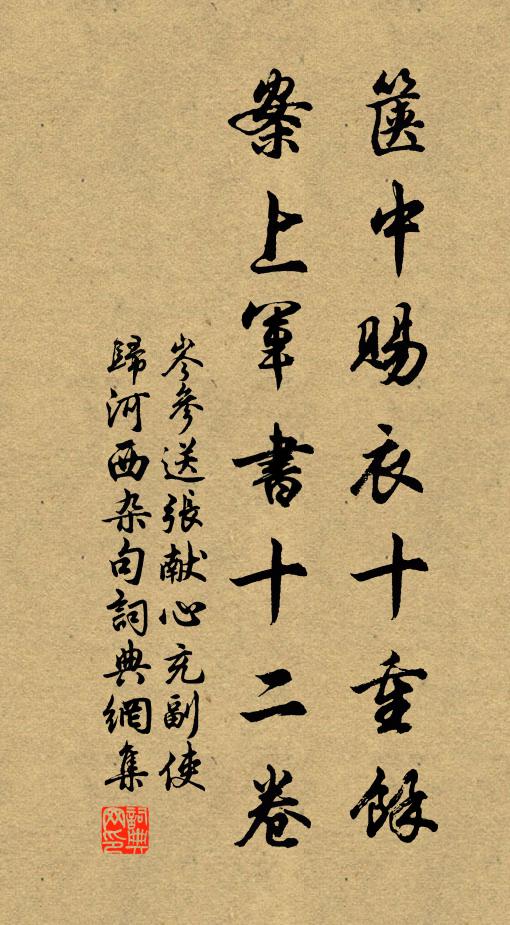 篋中賜衣十重餘
案上軍書十二卷
岑參送張献心充副使
歸河西杂句詞典網集
詞典网印